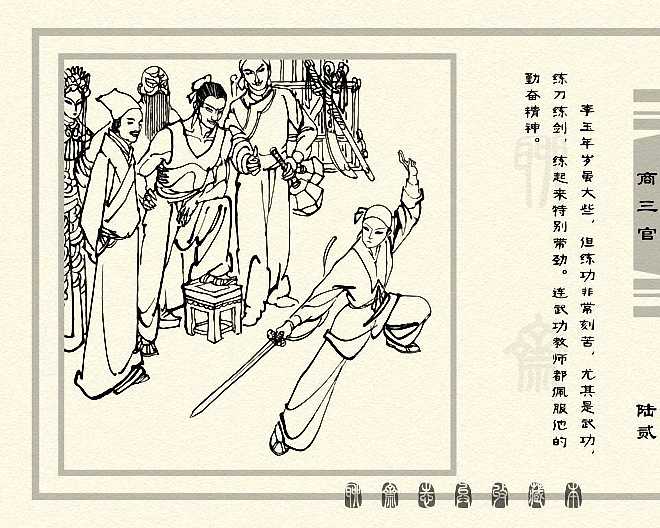 李玉年岁虽大些，但练功非常刻苦，尤其是武功，
练刀练剑，练起来特别带劲。连武功教师都佩服他的
勤奋精神。
商三官
陆贰